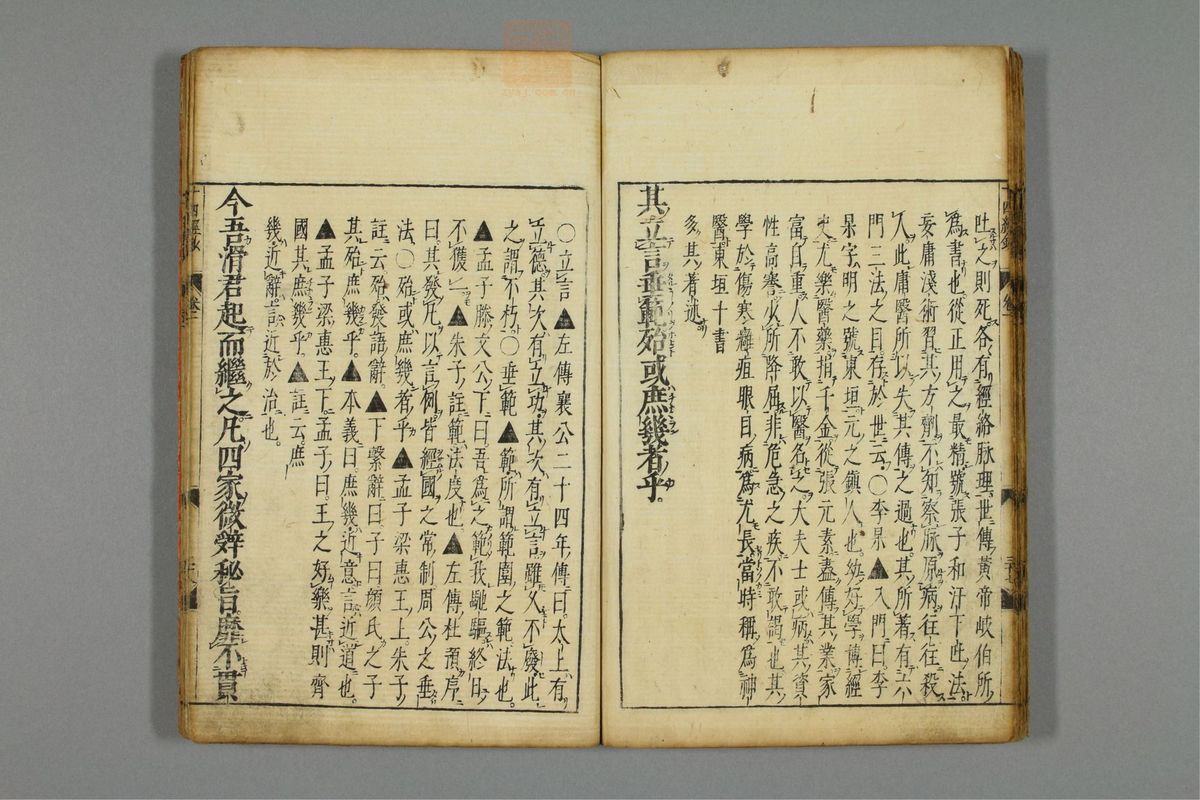 吐之則死各有經絡脉理世傳黃帝岐伯所
爲書也從正用之最精號張子和汗下吐法
妄庸淺術習其方劑不知察脉原病往往殺
人此庸醫所以失其傳之過也其所著有六
門三法之目存於世云〇李杲▲入門曰李
杲字明之號東垣元之鎮人也幼好學博經
史尤樂醫藥捐千金從張元素盡傳其業家
富自重人不敢以醫名之大夫士或病其資
性高謇少所降屈非危急之疾不敢謁也其
學於傷寒癰疽眼目病爲尤長當時稱爲神
醫東垣十書
多其著述
其立言垂範殆或庶幾者乎
〇立言▲左傳襄公二十四年傳曰太上有
立德其次有立功其次有立言雖久不廢此
之謂不朽〇垂範▲範所謂範圍之範法也
▲孟子滕文公下曰吾爲之範我馳驅終日
不獲一▲朱子註範法度也▲左傳杜預序
曰其發凡以言例皆經國之常制周公之垂
法〇殆或庶幾者乎▲孟子梁惠王上朱子
註云殆發語辭▲下繫辭曰子曰顏氏之子
其殆庶幾乎▲本義曰庶幾近意言近道也
▲孟子梁惠王下孟子曰王之好樂甚則齊
國其庶幾乎▲註云庶
幾近辭言近於治也
今吾滑君起而繼之凡四家微辭秘旨靡不貫
四經
卷二